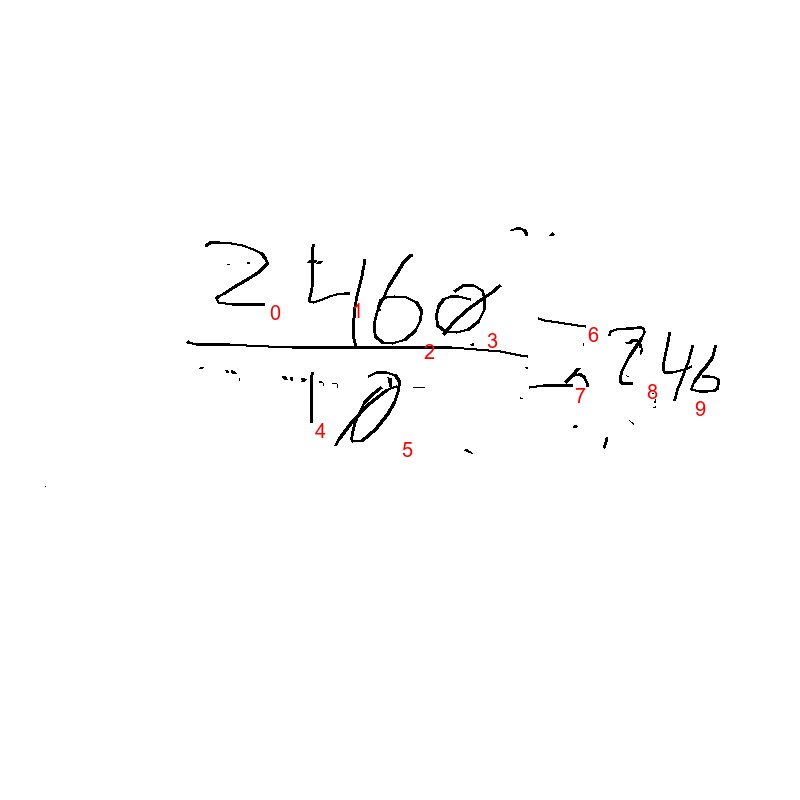 2460
10
= 246
0
1
2
3
4
5
6
7
8
9